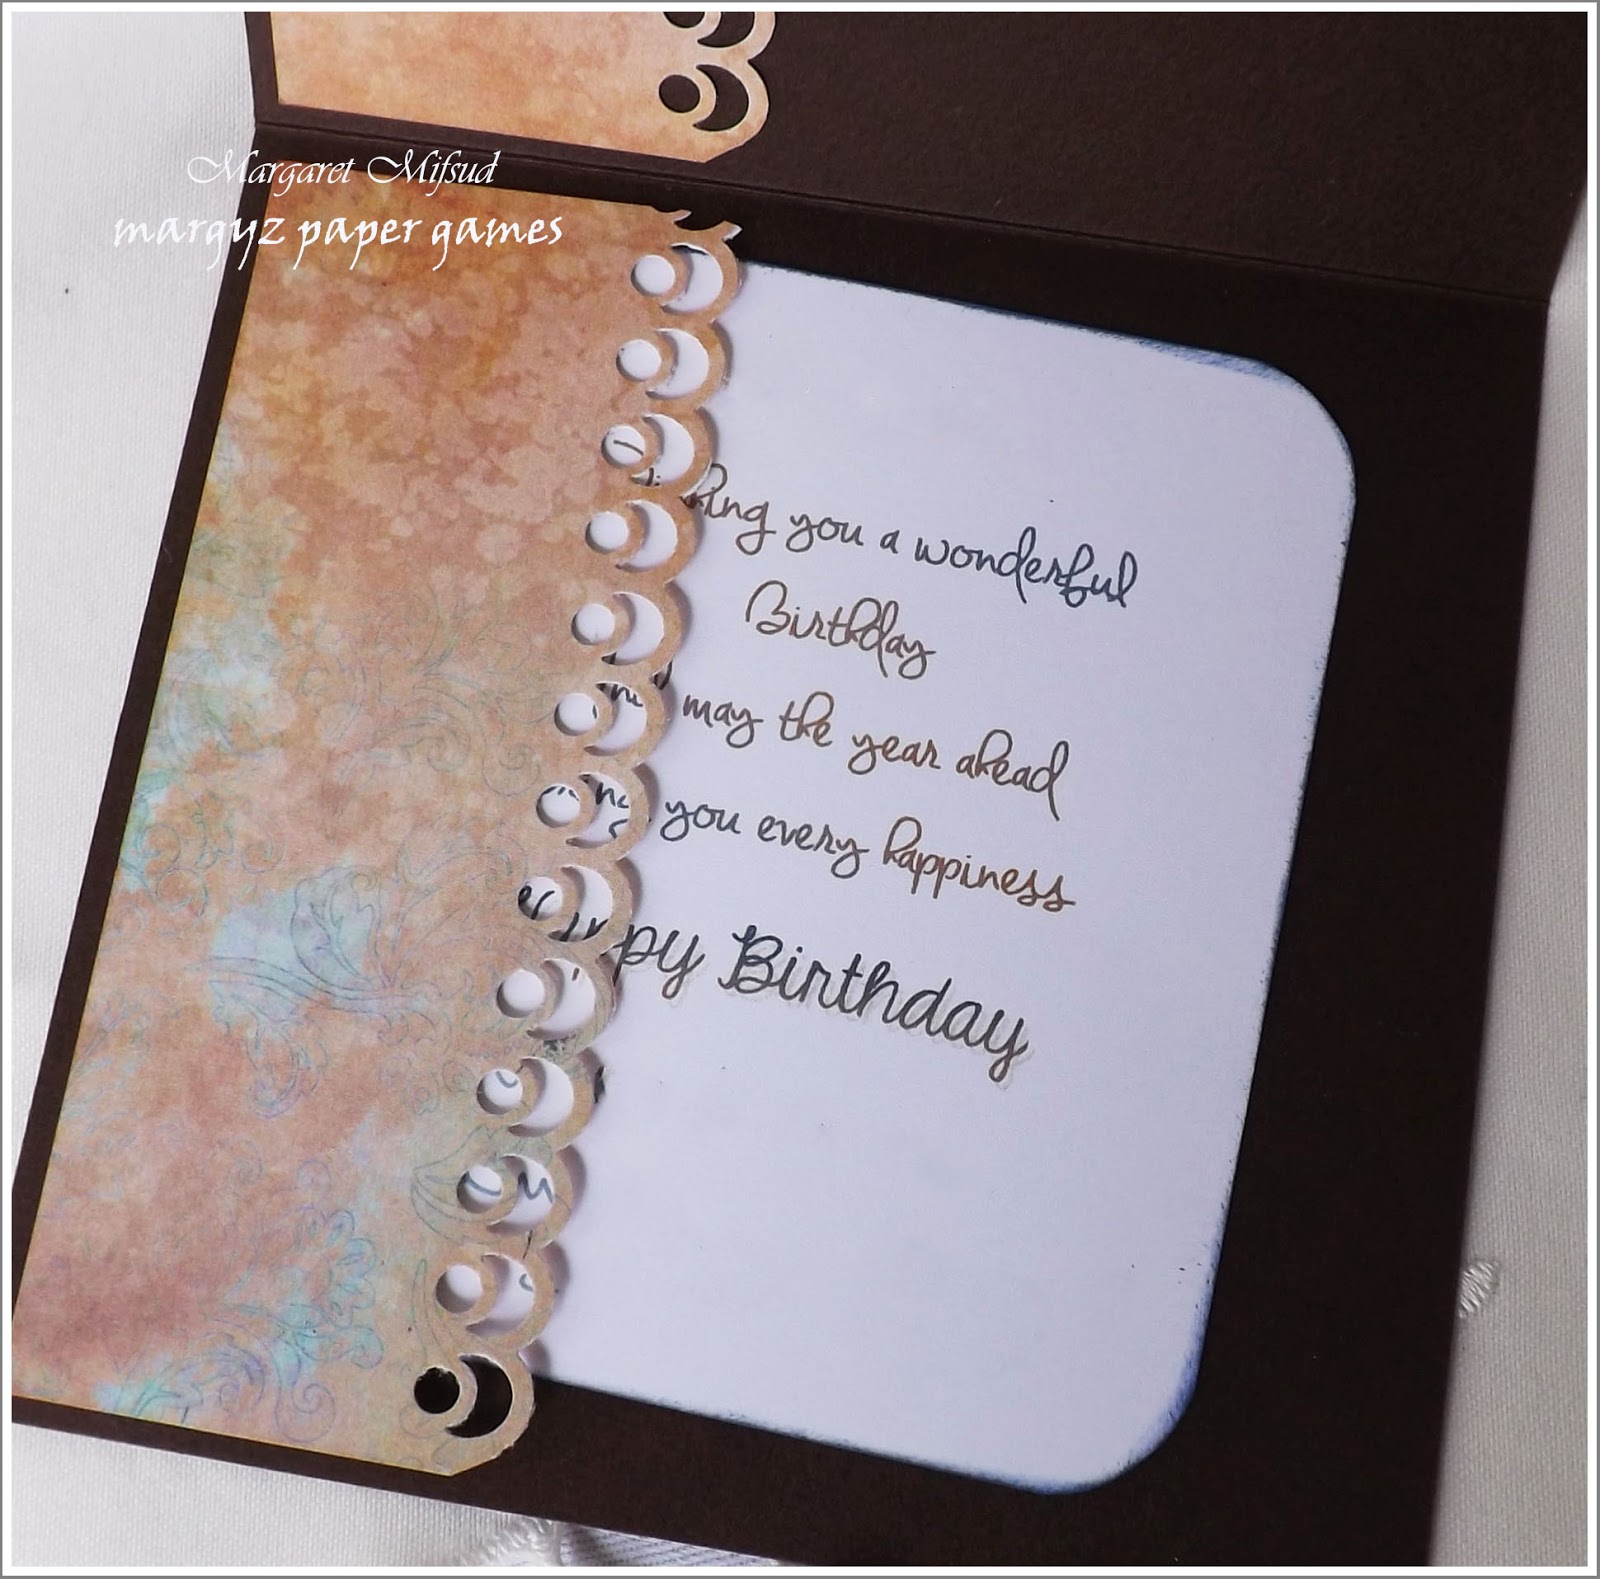 Margaret Mifsud
margyz paper games
you a wonderful
Birthday
may the year ahead
you every happiness
Birthday